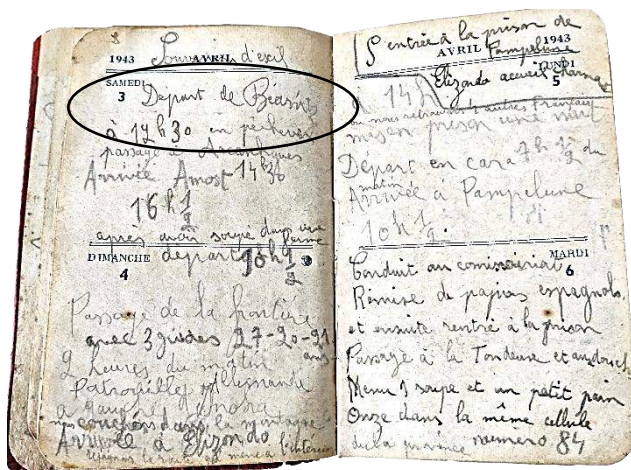 Souvenir d'exil
1943 AVRIL
SAMEDI
3 Depart de
à 12h30 en pecheur
passage à Arcangues
Arrivée 14h30
16h 1/2
après avoir soupé dans une ferme
DIMANCHE depart 18h 1/2
4
Passage de la frontière
avec 3 guides 27-20-21
ans
2 heures du matin
Patrouille allemande
à
couchons dans la montagne
Arrivée à Elizondo
S entrée à la prison de
Pampelune
AVRIL 1943
LUNDI
Elizondo accueil
5
à 14h
nous retrouvons 4 autres français
mis en prison une nuit
Départ en cara 7h 1/2 du
matin
Arrivée à Pampelune
10h 1/2.
MARDI
6
Conduit au comissariat
Remise de papiers espagnols
et ensuite rentré à la prison
Passage à la Tondeuse et aux douches
Menu 1 soupe et un petit pain
Onze dans la même cellule
de la province numero 84